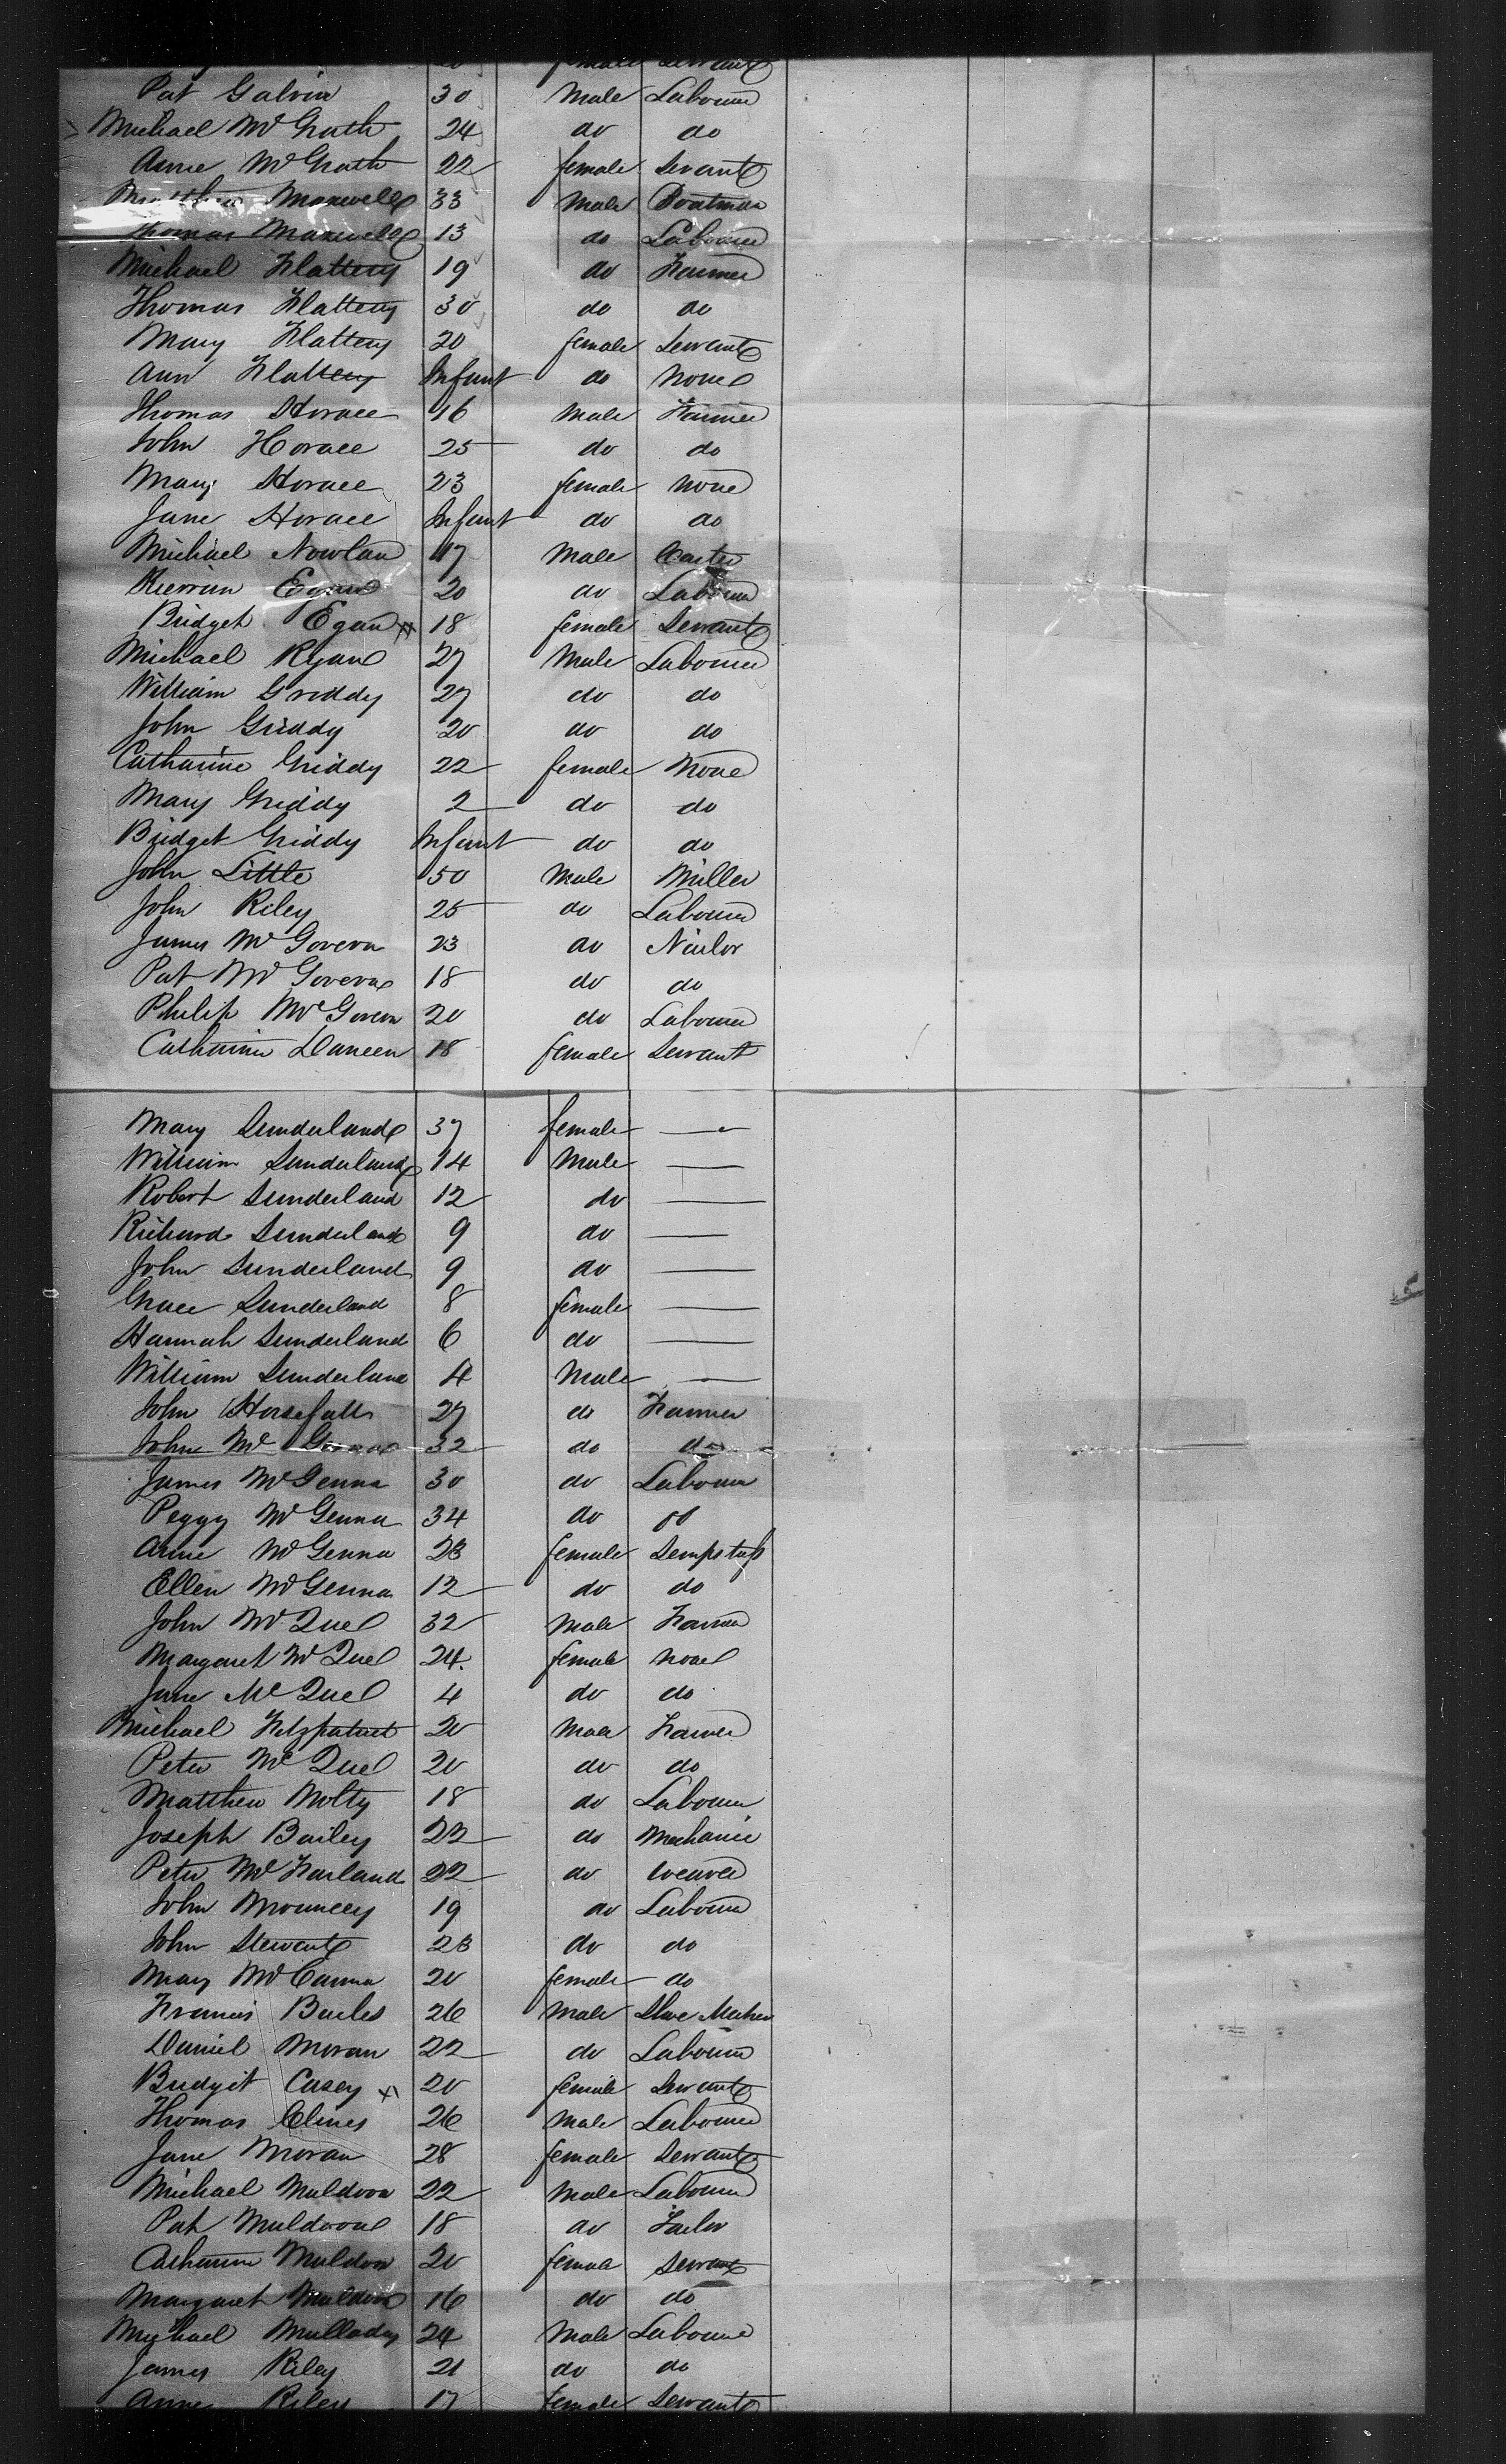 female Servant
Pat Galvin 30 Male Labourer
Michael McGrath 24 do do
Anne McGrath 22 female Servant
Matthew Maxwell 33 Male Boatman
Thomas Maxwell 13 do Labourer
Michael Flattery 19 do Farmer
Thomas Flattery 30 do do
Mary Flattery 20 female Servant
Ann Flattery Infant do None
Thomas Horace 16 Male Farmer
John Horace 25 do do
Mary Horace 23 female None
Jane Horace Infant do do
Michael Nowlan 17 Male Carter
Kierrin Egan 20 do Labourer
Bridget Egan 18 female Servant
Michael Ryan 27 Male Labourer
William Griddy 27 do do
John Griddy 20 do do
Catharine Griddy 22 female None
Mary Griddy 2 do do
Bridget Griddy Infant do do
John Little 50 Male Miller
John Riley 25 do Labourer
James McGovern 23 do Nailor
Pat McGovern 18 do do
Philip McGovern 20 do Labourer
Catharine Daneen 18 female Servant
Mary Sunderland 37 female —
William Sunderland 14 Male —
Robert Sunderland 12 do —
Richard Sunderland 9 do —
John Sunderland 9 do —
Grace Sunderland 8 female —
Hannah Sunderland 6 do —
William Sunderland 4 Male —
John Horsefall 27 do Farmer
John Mc 32 do do
James McGenna 30 do Labourer
Peggy McGenna 34 do do
Anne McGenna 23 female Sempstress
Ellen McGenna 12 do do
John McQuel 32 Male Farmer
Margaret McQuel 24 female None
Jane McQuel 4 do do
Michael Fitzpatrick 20 Male Farmer
Peter McQuel 20 do do
Matthew Molty 18 do Labourer
Joseph Bailey 22 do Mechanic
Peter McFarland 22 do Weaver
John Mouncey 19 do Labourer
John Stewart 23 do do
Mary McCanna 20 female do
Francis Bailes 26 Male Shoe Maker
Daniel Moran 22 do Labourer
Bridget Casey 20 female Servant
Thomas Clines 26 Male Labourer
Jane Moran 28 female Servant
Michael Muldoon 22 Male Labourer
Pat Muldoon 18 do Tailor
Catharine Muldoon 20 female Servant
Margaret Muldoon 16 do do
Michael Mulladay 24 Male Labourer
James Riley 21 do do
Anne Riley 17 female Servant